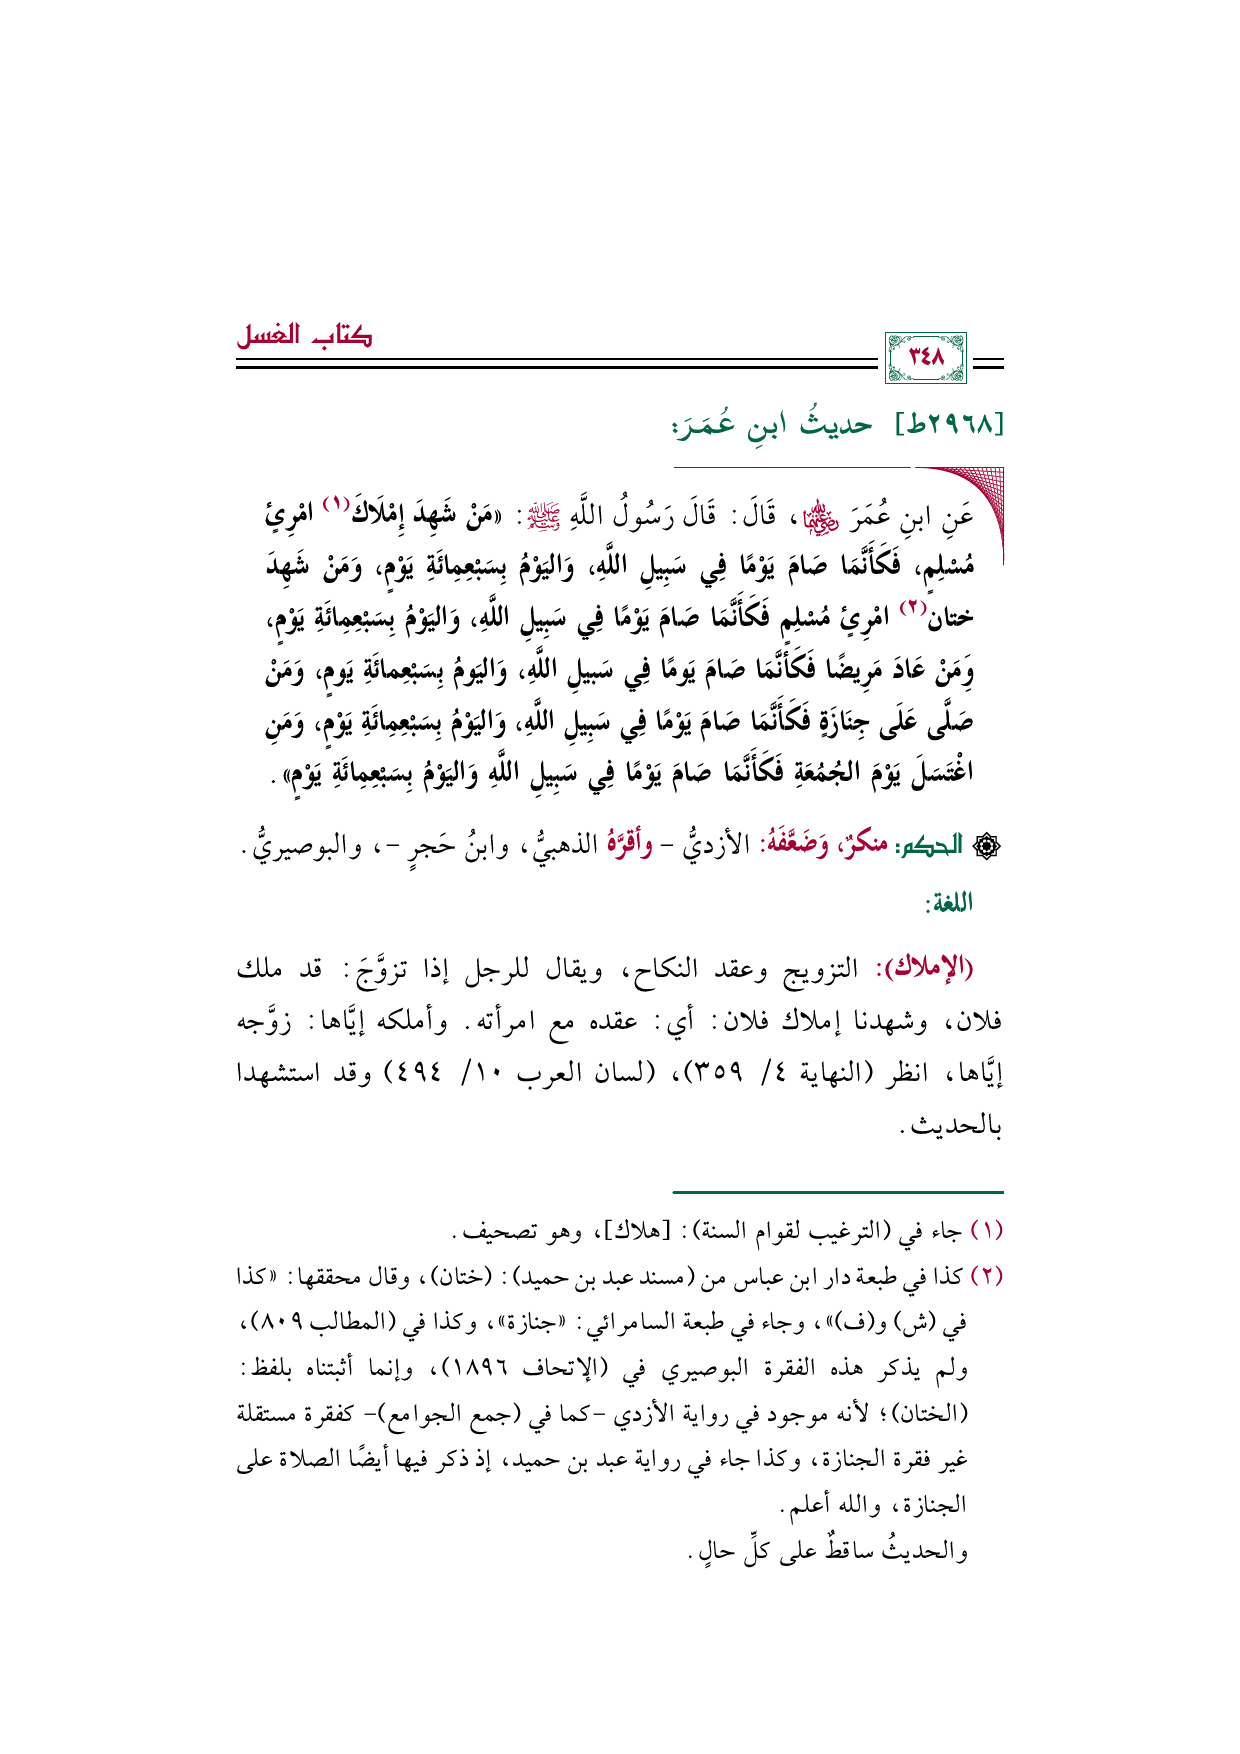 كتاب الغسل
٣٤٨
[٢٩٦٨ط] حديثُ ابنِ عُمَرَ:
عَنِ ابنِ عُمَرَ رضي الله عنهما، قَالَ: قَالَ رَسُولُ اللَّهِ ﷺ: «مَنْ شَهِدَ إِمْلَاكَ(١) امْرِئٍ
مُسْلِمٍ، فَكَأَنَّمَا صَامَ يَوْمًا فِي سَبِيلِ اللَّهِ، وَاليَوْمُ بِسَبْعِمِائَةِ يَوْمٍ، وَمَنْ شَهِدَ
ختان(٢) امْرِئٍ مُسْلِمٍ فَكَأَنَّمَا صَامَ يَوْمًا فِي سَبِيلِ اللَّهِ، وَاليَوْمُ بِسَبْعِمِائَةِ يَوْمٍ،
وَمَنْ عَادَ مَرِيضًا فَكَأنَّمَا صَامَ يَومًا فِي سَبيلِ اللَّهِ، وَاليَومُ بِسَبْعِمائَةِ يَومٍ، وَمَنْ
صَلَّى عَلَى جِنَازَةٍ فَكَأَنَّمَا صَامَ يَوْمًا فِي سَبِيلِ اللَّهِ، وَاليَوْمُ بِسَبْعِمِائَةِ يَوْمٍ، وَمَنِ
اغْتَسَلَ يَوْمَ الجُمُعَةِ فَكَأَنَّمَا صَامَ يَوْمًا فِي سَبِيلِ اللَّهِ وَاليَوْمُ بِسَبْعِمِائَةِ يَوْمٍ».
الحكم: منكرٌ، وَضَعَّفَهُ: الأزديُّ - وأقرَّهُ الذهبيُّ، وابنُ حَجرٍ -، والبوصيريُّ.
اللغة:
(الإملاك): التزويج وعقد النكاح، ويقال للرجل إذا تزوَّجَ: قد ملك
فلان، وشهدنا إملاك فلان: أي: عقده مع امرأته. وأملكه إيَّاها: زوَّجه
إيَّاها، انظر (النهاية ٤/ ٣٥٩)، (لسان العرب ١٠/ ٤٩٤) وقد استشهدا
بالحديث.
(١) جاء في (الترغيب لقوام السنة): [هلاك]، وهو تصحيف.
(٢) كذا في طبعة دار ابن عباس من (مسند عبد بن حميد): (ختان)، وقال محققها: «كذا
في (ش) و(ف)»، وجاء في طبعة السامرائي: «جنازة»، وكذا في (المطالب ٨٠٩)،
ولم يذكر هذه الفقرة البوصيري في (الإتحاف ١٨٩٦)، وإنما أثبتناه بلفظ:
(الختان)؛ لأنه موجود في رواية الأزدي -كما في (جمع الجوامع)- كفقرة مستقلة
غير فقرة الجنازة، وكذا جاء في رواية عبد بن حميد، إذ ذكر فيها أيضًا الصلاة على
الجنازة، والله أعلم.
والحديثُ ساقطٌ على كلِّ حالٍ.